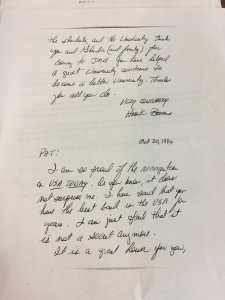 the students, and the University. Thank
you and (and family) for
coming to JMU. You have helped
a great University continue to
become a better University. Thanks
for all you do.
Very Sincerely
Hank
Oct 20, 1994
PAT:
I am so proud of the recognition
in USA TODAY. As you know, it does
not surprise me. I have said that you
have the best band in the USA for
years. I am just glad that it
is not a secret any more.
It is a great honor for you,